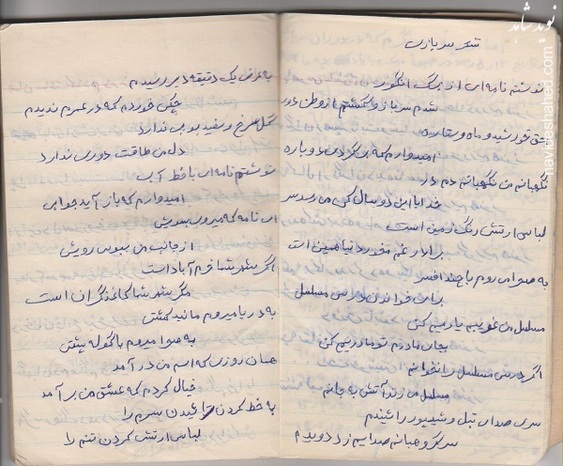 شعر سربازی
نوشتم نامه‌ای از برگ انگور
شدم سرباز و گشتم از وطن دور
قورشید و ماه و ستاره
امیدوارم که برگردی دوباره
نگهبانم من نگهبانم دم در
خدایا این دو سال کی می رسد سر
لباس ارتش رنگ زمین است
برادر غم مخور دنیا همین است
به صحرا می روم با چند افسر
برای خواندن درس مسلسل
مسلسل من غریبم یاریم کن
بجان مادرم تو مادریم کن
اگر درس مسلسل را نخوانم
مسلسل می زند آتش به جانم
سری صدای تبل و شیپور را شنیدم
سرگروهبانم صدایم زد دویدم
به عرض یک دقیقه دیر رسیدم
چکی خوردم که در عمرم ندیدم
گل سرخ و سفید بویی ندارد
دل من طاقت دوری ندارد
نوشتم نامه‌ای با خط آبی
امیدوارم که باز آید جوابی
ای نامه که میروی بسویش
از جانب من ببوس رویش
اگر شهر شما خرم آباد است
مگر شهر شما کاغذ گران است
به دریا میروم مانند کشتی
به صحرا میروم با کوله پشتی
همان روزی که اسم من در آمد
خیال کردم که عشق من بر آمد
به خط کردن تراشیدن سرم را
لباس ارتش کردن تنم را
نوید شاهد
navideshahed.com